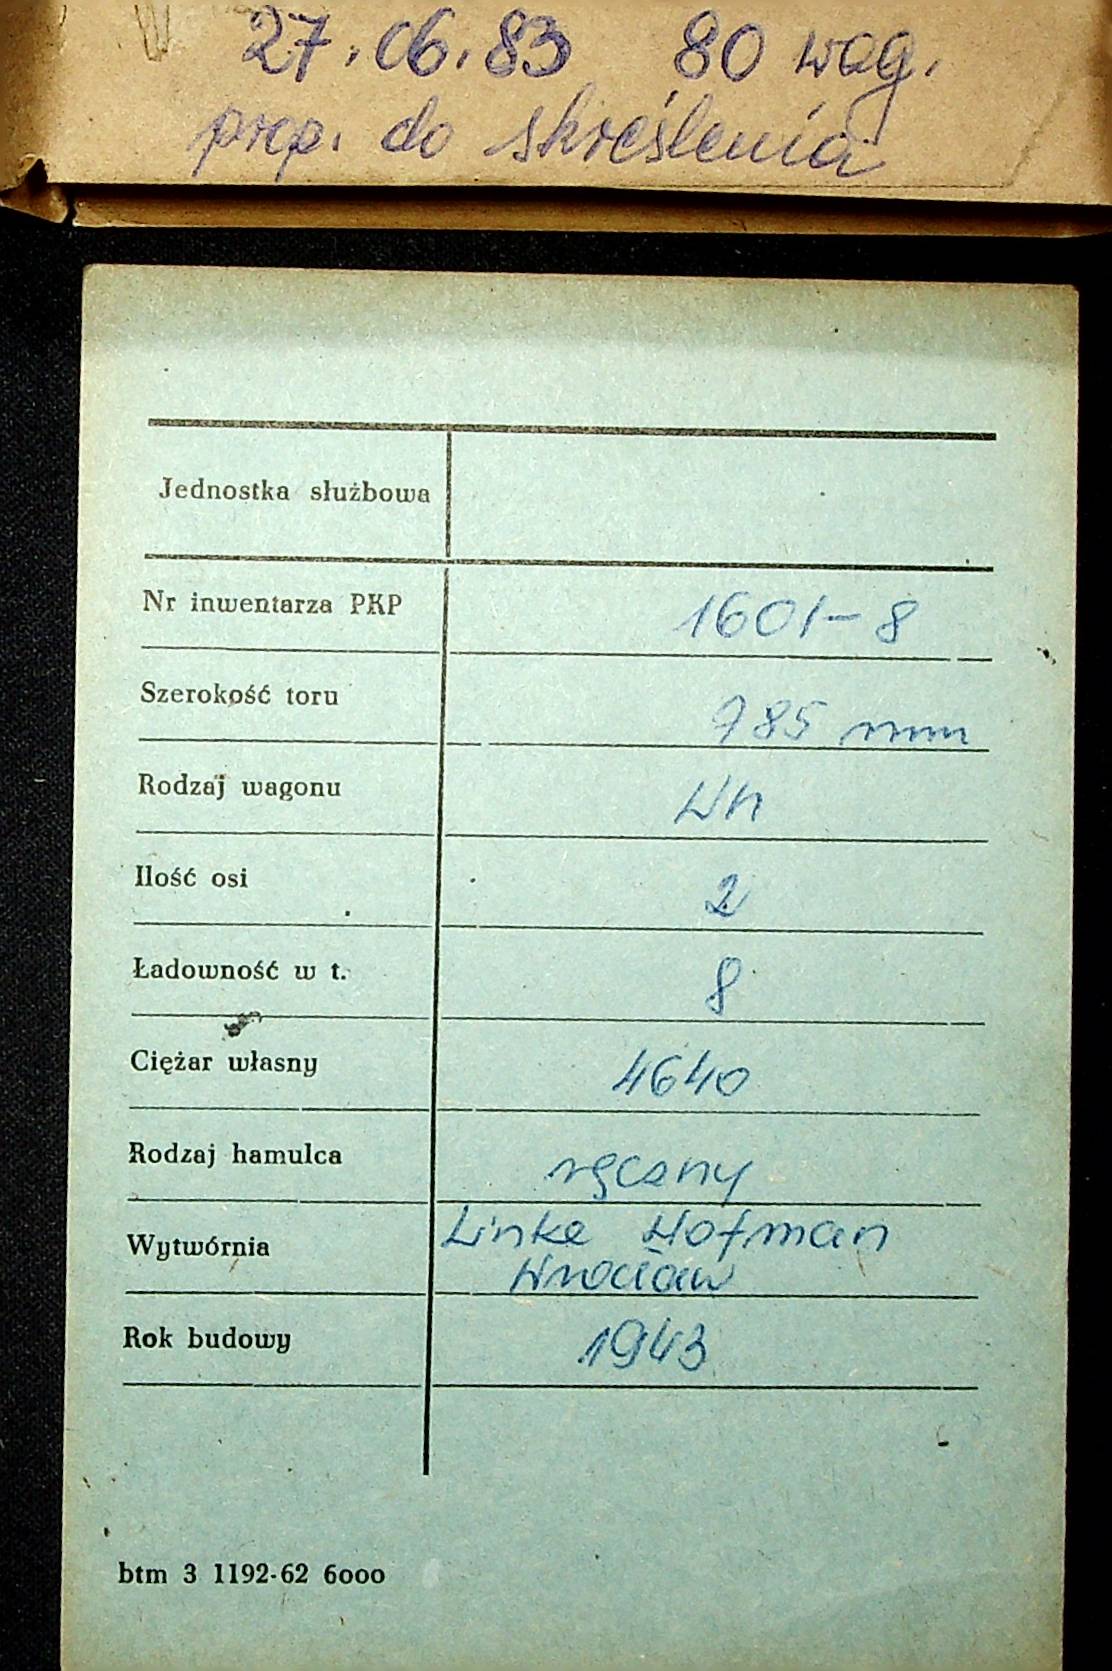 27.06.83 80 wag.
prop. do skreślenia
Jednostka służbowa
Nr inwentarza PKP 1601-8
Szerokość toru 785 mm
Rodzaj wagonu Wh
Ilość osi 2
Ładowność w t. 8
Ciężar własny 4640
Rodzaj hamulca ręczny
Wytwórnia Linke Hofman
Wrocław
Rok budowy 1943
btm 3 1192-62 6000